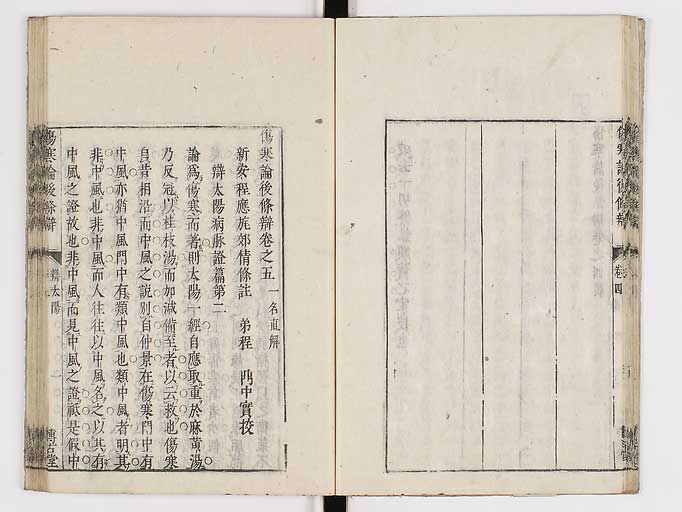 傷寒論後條辯
卷四
傷寒論後條辯卷之五 一名直解
新安程應旄郊倩條註 弟程 門中實按
辯太陽病脉證篇第二
論爲傷寒而著則太陽一經自應取重於麻黃湯
乃反冠以桂枝湯而加減備至者以云救也傷寒
自昔相沿而中風之說別自仲景在傷寒門中有
中風亦猶中風門中有類中風也類中風者明其
非中風也非中風而人往往以中風名之以其有
中風之證故也非中風而見中風之證祇是假中
傷寒論後條辯
辯太陽
一
博古堂